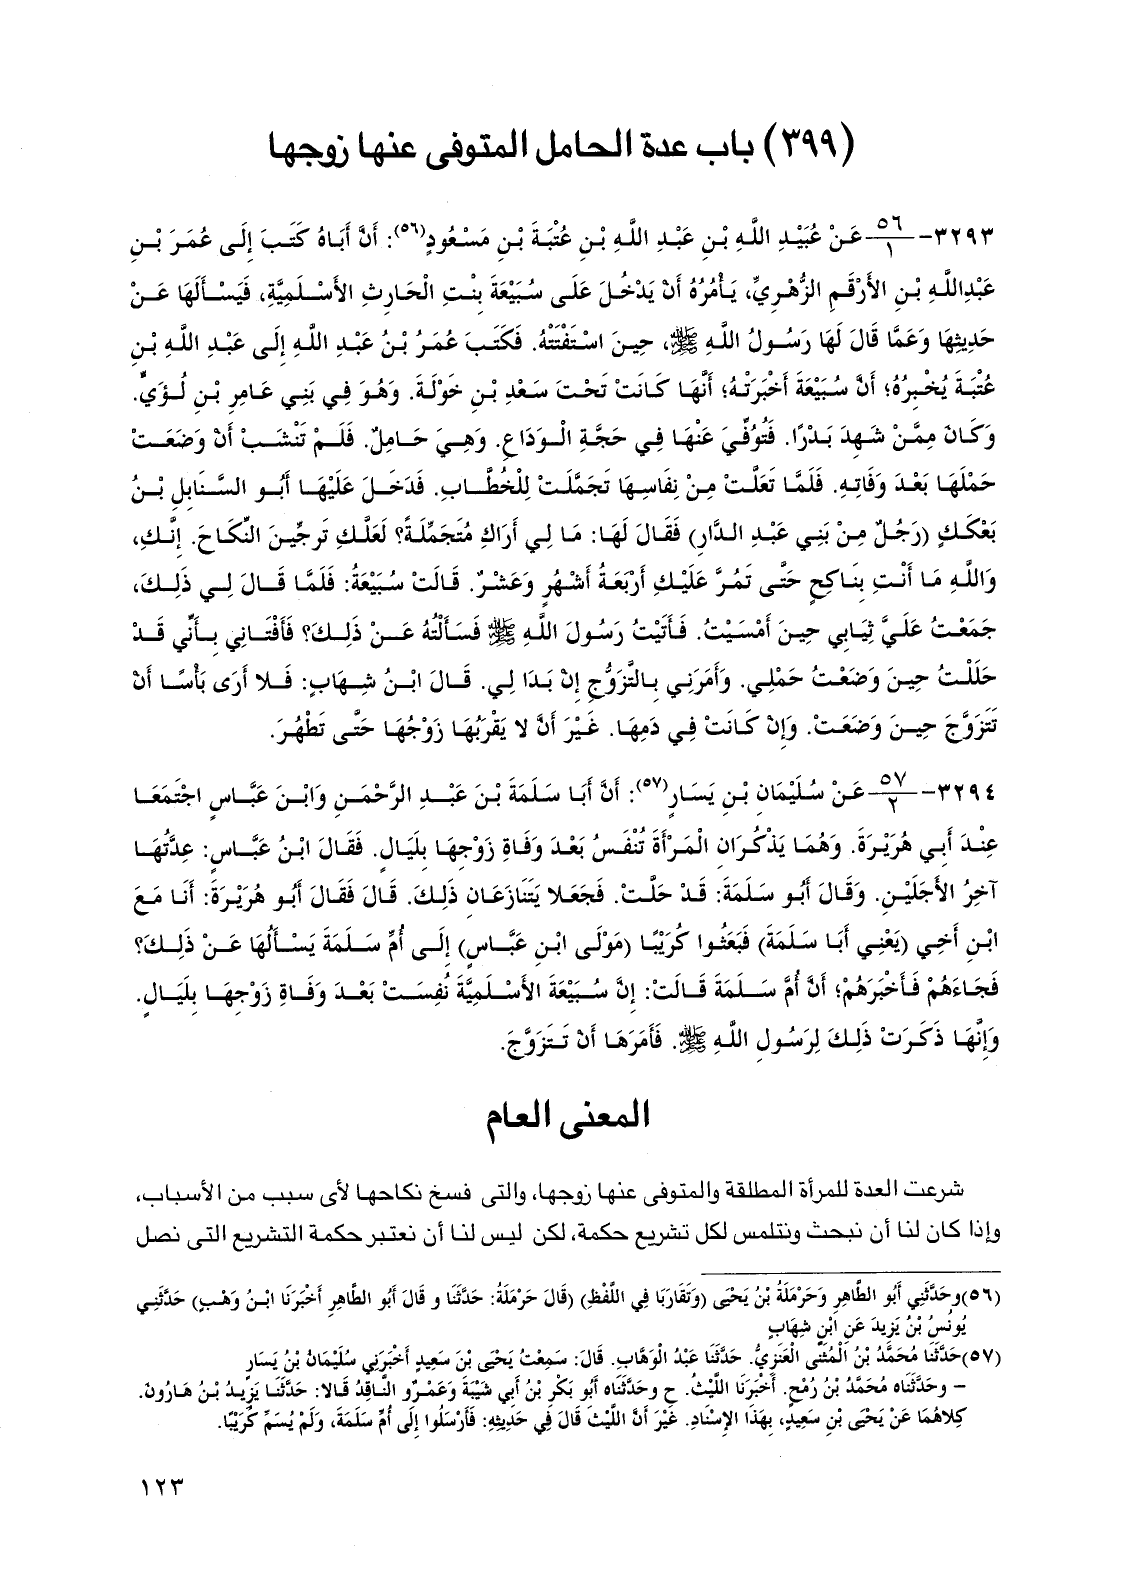 (٣٩٩) باب عدة الحامل المتوفى عنها زوجها
٣٢٩٣- ٥٦/١ عَنْ عُبَيْدِ اللَّهِ بْنِ عَبْدِ اللَّهِ بْنِ عُتْبَةَ بْنِ مَسْعُودٍ(٥٦): أَنَّ أَبَاهُ كَتَبَ إِلَى عُمَرَ بْنِ
عَبْدِاللَّهِ بْنِ الأَرْقَمِ الزُّهْرِيِّ، يَأْمُرُهُ أَنْ يَدْخُلَ عَلَى سُبَيْعَةَ بِنْتِ الْحَارِثِ الأَسْلَمِيَّةِ، فَيَسْأَلَهَا عَنْ
حَدِيثِهَا وَعَمَّا قَالَ لَهَا رَسُولُ اللَّهِ ﷺ، حِينَ اسْتَفْتَتْهُ. فَكَتَبَ عُمَرُ بْنُ عَبْدِ اللَّهِ إِلَى عَبْدِ اللَّهِ بْنِ
عُتْبَةَ يُخْبِرُهُ؛ أَنَّ سُبَيْعَةَ أَخْبَرَتْهُ؛ أَنَّهَا كَانَتْ تَحْتَ سَعْدِ بْنِ خَوْلَةَ. وَهُوَ فِي بَنِي عَامِرِ بْنِ لُؤَيٍّ.
وَكَانَ مِمَّنْ شَهِدَ بَدْرًا. فَتُوُفِّيَ عَنْهَا فِي حَجَّةِ الْوَدَاعِ. وَهِيَ حَامِلٌ. فَلَمْ تَنْشَبْ أَنْ وَضَعَتْ
حَمْلَهَا بَعْدَ وَفَاتِهِ. فَلَمَّا تَعَلَّتْ مِنْ نِفَاسِهَا تَجَمَّلَتْ لِلْخُطَّابِ. فَدَخَلَ عَلَيْهَا أَبُو السَّنَابِلِ بْنُ
بَعْكَكٍ (رَجُلٌ مِنْ بَنِي عَبْدِ الدَّارِ) فَقَالَ لَهَا: مَا لِي أَرَاكِ مُتَجَمِّلَةً؟ لَعَلَّكِ تَرجِّينَ النِّكَاحَ. إِنَّكِ،
وَاللَّهِ مَا أَنْتِ بِنَاكِحٍ حَتَّى تَمُرَّ عَلَيْكِ أَرْبَعَةُ أَشْهُرٍ وَعَشْرٌ. قَالَتْ سُبَيْعَةُ: فَلَمَّا قَالَ لِي ذَلِكَ،
جَمَعْتُ عَلَيَّ ثِيَابِي حِينَ أَمْسَيْتُ. فَأَتَيْتُ رَسُولَ اللَّهِ ﷺ فَسَأَلْتُهُ عَنْ ذَلِكَ؟ فَأَفْتَانِي بِأَنِّي قَدْ
حَلَلْتُ حِينَ وَضَعْتُ حَمْلِي. وَأَمَرَنِي بِالتَّزَوُّجِ إِنْ بَدَا لِي. قَالَ ابْنُ شِهَابٍ: فَلا أَرَى بَأْسًا أَنْ
تَتَزَوَّجَ حِينَ وَضَعَتْ. وَإِنْ كَانَتْ فِي دَمِهَا. غَيْرَ أَنَّ لا يَقْرَبُهَا زَوْجُهَا حَتَّى تَطْهُرَ.
٣٢٩٤- ٥٧/٢ عَنْ سُلَيْمَانِ بْنِ يَسَارٍ(٥٧): أَنَّ أَبَا سَلَمَةَ بْنَ عَبْدِ الرَّحْمَنِ وَابْنَ عَبَّاسٍ اجْتَمَعَا
عِنْدَ أَبِي هُرَيْرَةَ. وَهُمَا يَذْكُرَانِ الْمَرْأَةَ تُنْفَسُ بَعْدَ وَفَاةِ زَوْجِهَا بِلَيَالٍ. فَقَالَ ابْنُ عَبَّاسٍ: عِدَّتُهَا
آخِرُ الأَجَلَيْنِ. وَقَالَ أَبُو سَلَمَةَ: قَدْ حَلَّتْ. فَجَعَلا يَتَنَازَعَانِ ذَلِكَ. قَالَ فَقَالَ أَبُو هُرَيْرَةَ: أَنَا مَعَ
ابْنِ أَخِي (يَعْنِي أَبَا سَلَمَةَ) فَبَعَثُوا كُرَيْبًا (مَوْلَى ابْنِ عَبَّاسٍ) إِلَى أُمِّ سَلَمَةَ يَسْأَلُهَا عَنْ ذَلِكَ؟
فَجَاءَهُمْ فَأَخْبَرَهُمْ؛ أَنَّ أُمَّ سَلَمَةَ قَالَتْ: إِنَّ سُبَيْعَةَ الأَسْلَمِيَّةَ نُفِسَتْ بَعْدَ وَفَاةِ زَوْجِهَا بِلَيَالٍ.
وَإِنَّهَا ذَكَرَتْ ذَلِكَ لِرَسُولِ اللَّهِ ﷺ. فَأَمَرَهَا أَنْ تَتَزَوَّجَ.
المعنى العام
شرعت العدة للمرأة المطلقة والمتوفى عنها زوجها، والتى فسخ نكاحها لأى سبب من الأسباب،
وإذا كان لنا أن نبحث ونتلمس لكل تشريع حكمة، لكن ليس لنا أن نعتبر حكمة التشريع التى نصل
(٥٦)وحَدَّثَنِي أَبُو الطَّاهِرِ وَحَرْمَلَةُ بْنُ يَحْيَى (وَتَقَارَبَا فِي اللَّفْظِ) (قَالَ حَرْمَلَةُ: حَدَّثَنَا و قَالَ أَبُو الطَّاهِرِ أَخْبَرَنَا ابْنُ وَهْبٍ) حَدَّثَنِي
يُونُسُ بْنُ يَزِيدَ عَنِ ابْنِ شِهَابٍ
(٥٧)حَدَّثَنَا مُحَمَّدُ بْنُ الْمُثَنَّى الْعَنَزِيُّ. حَدَّثَنَا عَبْدُ الْوَهَّابِ. قَالَ: سَمِعْتُ يَحْيَى بْنَ سَعِيدٍ أَخْبَرَنِي سُلَيْمَانُ بْنُ يَسَارٍ
– وحَدَّثَنَاه مُحَمَّدُ بْنُ رُمْحٍ. أَخْبَرَنَا اللَّيْثُ. ح وحَدَّثَنَاه أَبُو بَكْرِ بْنُ أَبِي شَيْبَةَ وَعَمْرٌو النَّاقِدُ قَالا: حَدَّثَنَا يَزِيدُ بْنُ هَارُونَ.
كِلاهُمَا عَنْ يَحْيَى بْنِ سَعِيدٍ، بِهَذَا الإِسْنَادِ. غَيْرَ أَنَّ اللَّيْثَ قَالَ فِي حَدِيثِهِ: فَأَرْسَلُوا إِلَى أُمِّ سَلَمَةَ، وَلَمْ يُسَمِّ كُرَيْبًا.
١٢٣